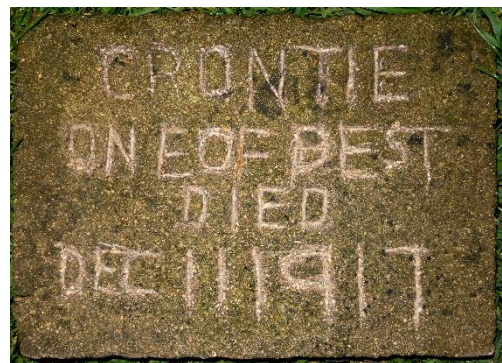 CRONTIE
ONE OF BEST
DIED
DEC 11 1917